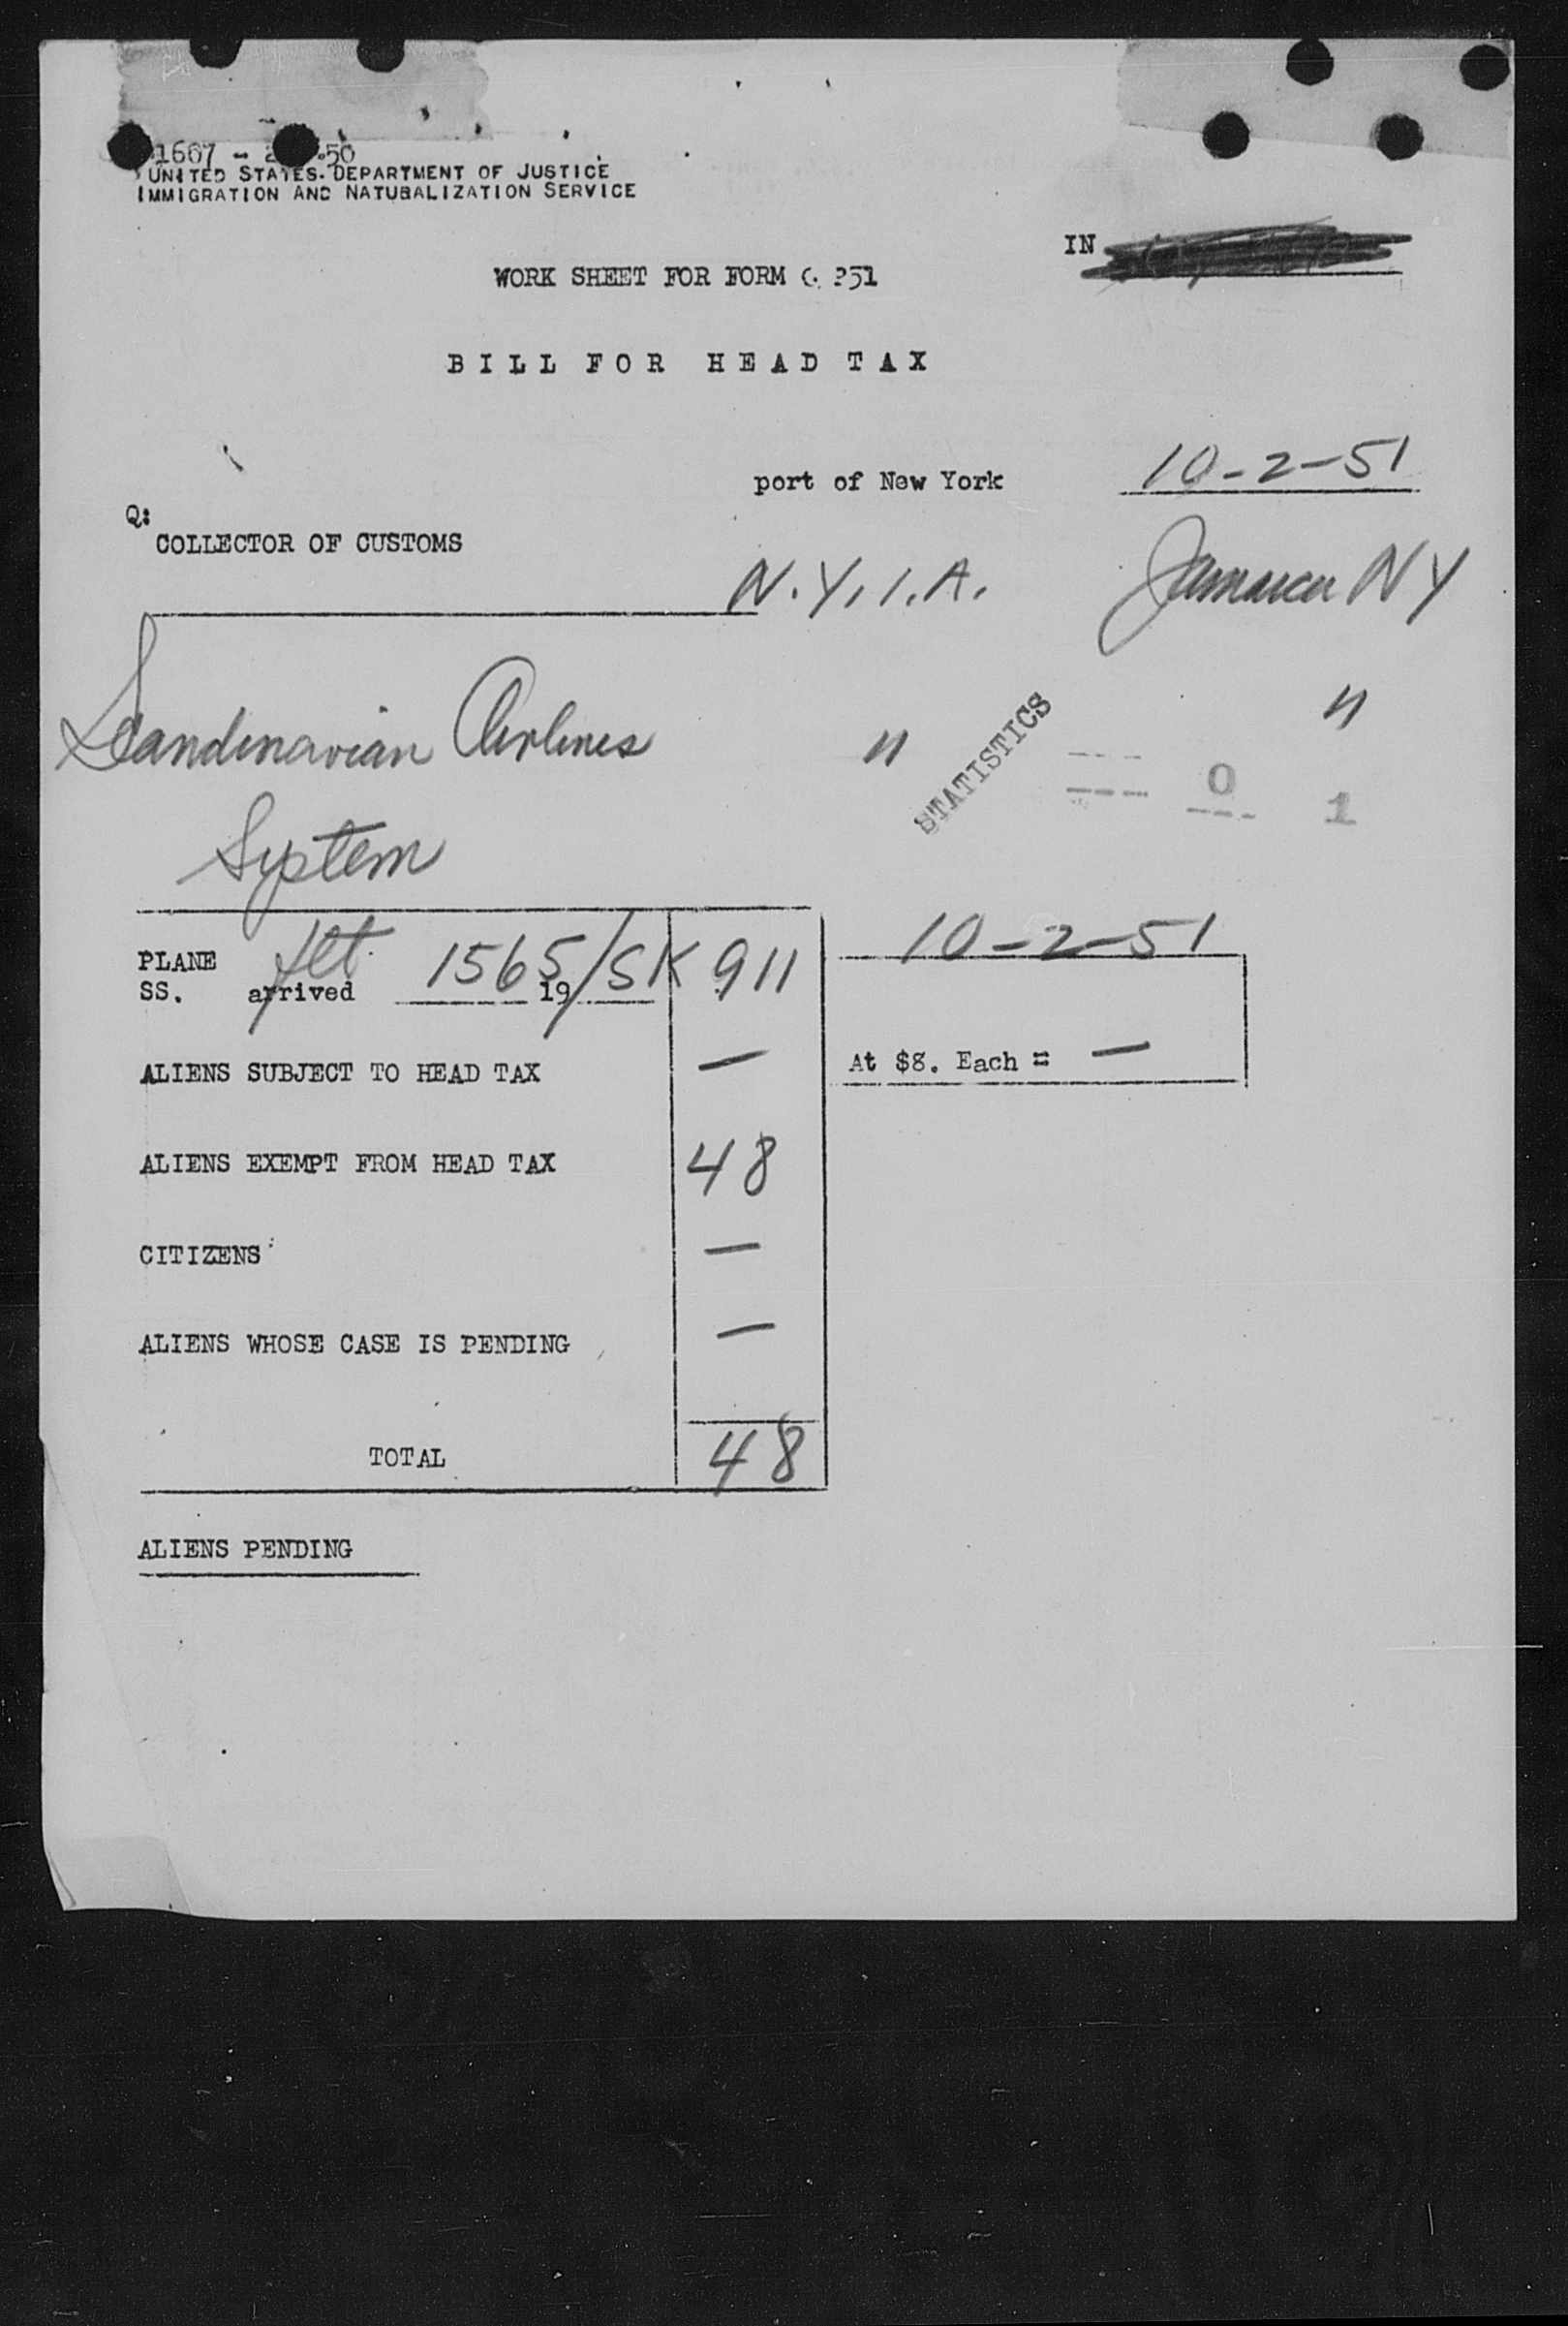 1667 - 50
UNITED STATES DEPARTMENT OF JUSTICE
IMMIGRATION AND NATURALIZATION SERVICE
IN
WORK SHEET FOR FORM 351
BILL FOR HEAD TAX
port of New York 10-2-51
Q:
COLLECTOR OF CUSTOMS
N.Y.I.A. Jamaica NY
Scandinavian Airlines " STATISTICS "
0 1
System
PLANE flt 1565/SK 911 10-2-51
SS. arrived 19
ALIENS SUBJECT TO HEAD TAX — At $8. Each = —
ALIENS EXEMPT FROM HEAD TAX 48
CITIZENS —
ALIENS WHOSE CASE IS PENDING —
TOTAL 48
ALIENS PENDING